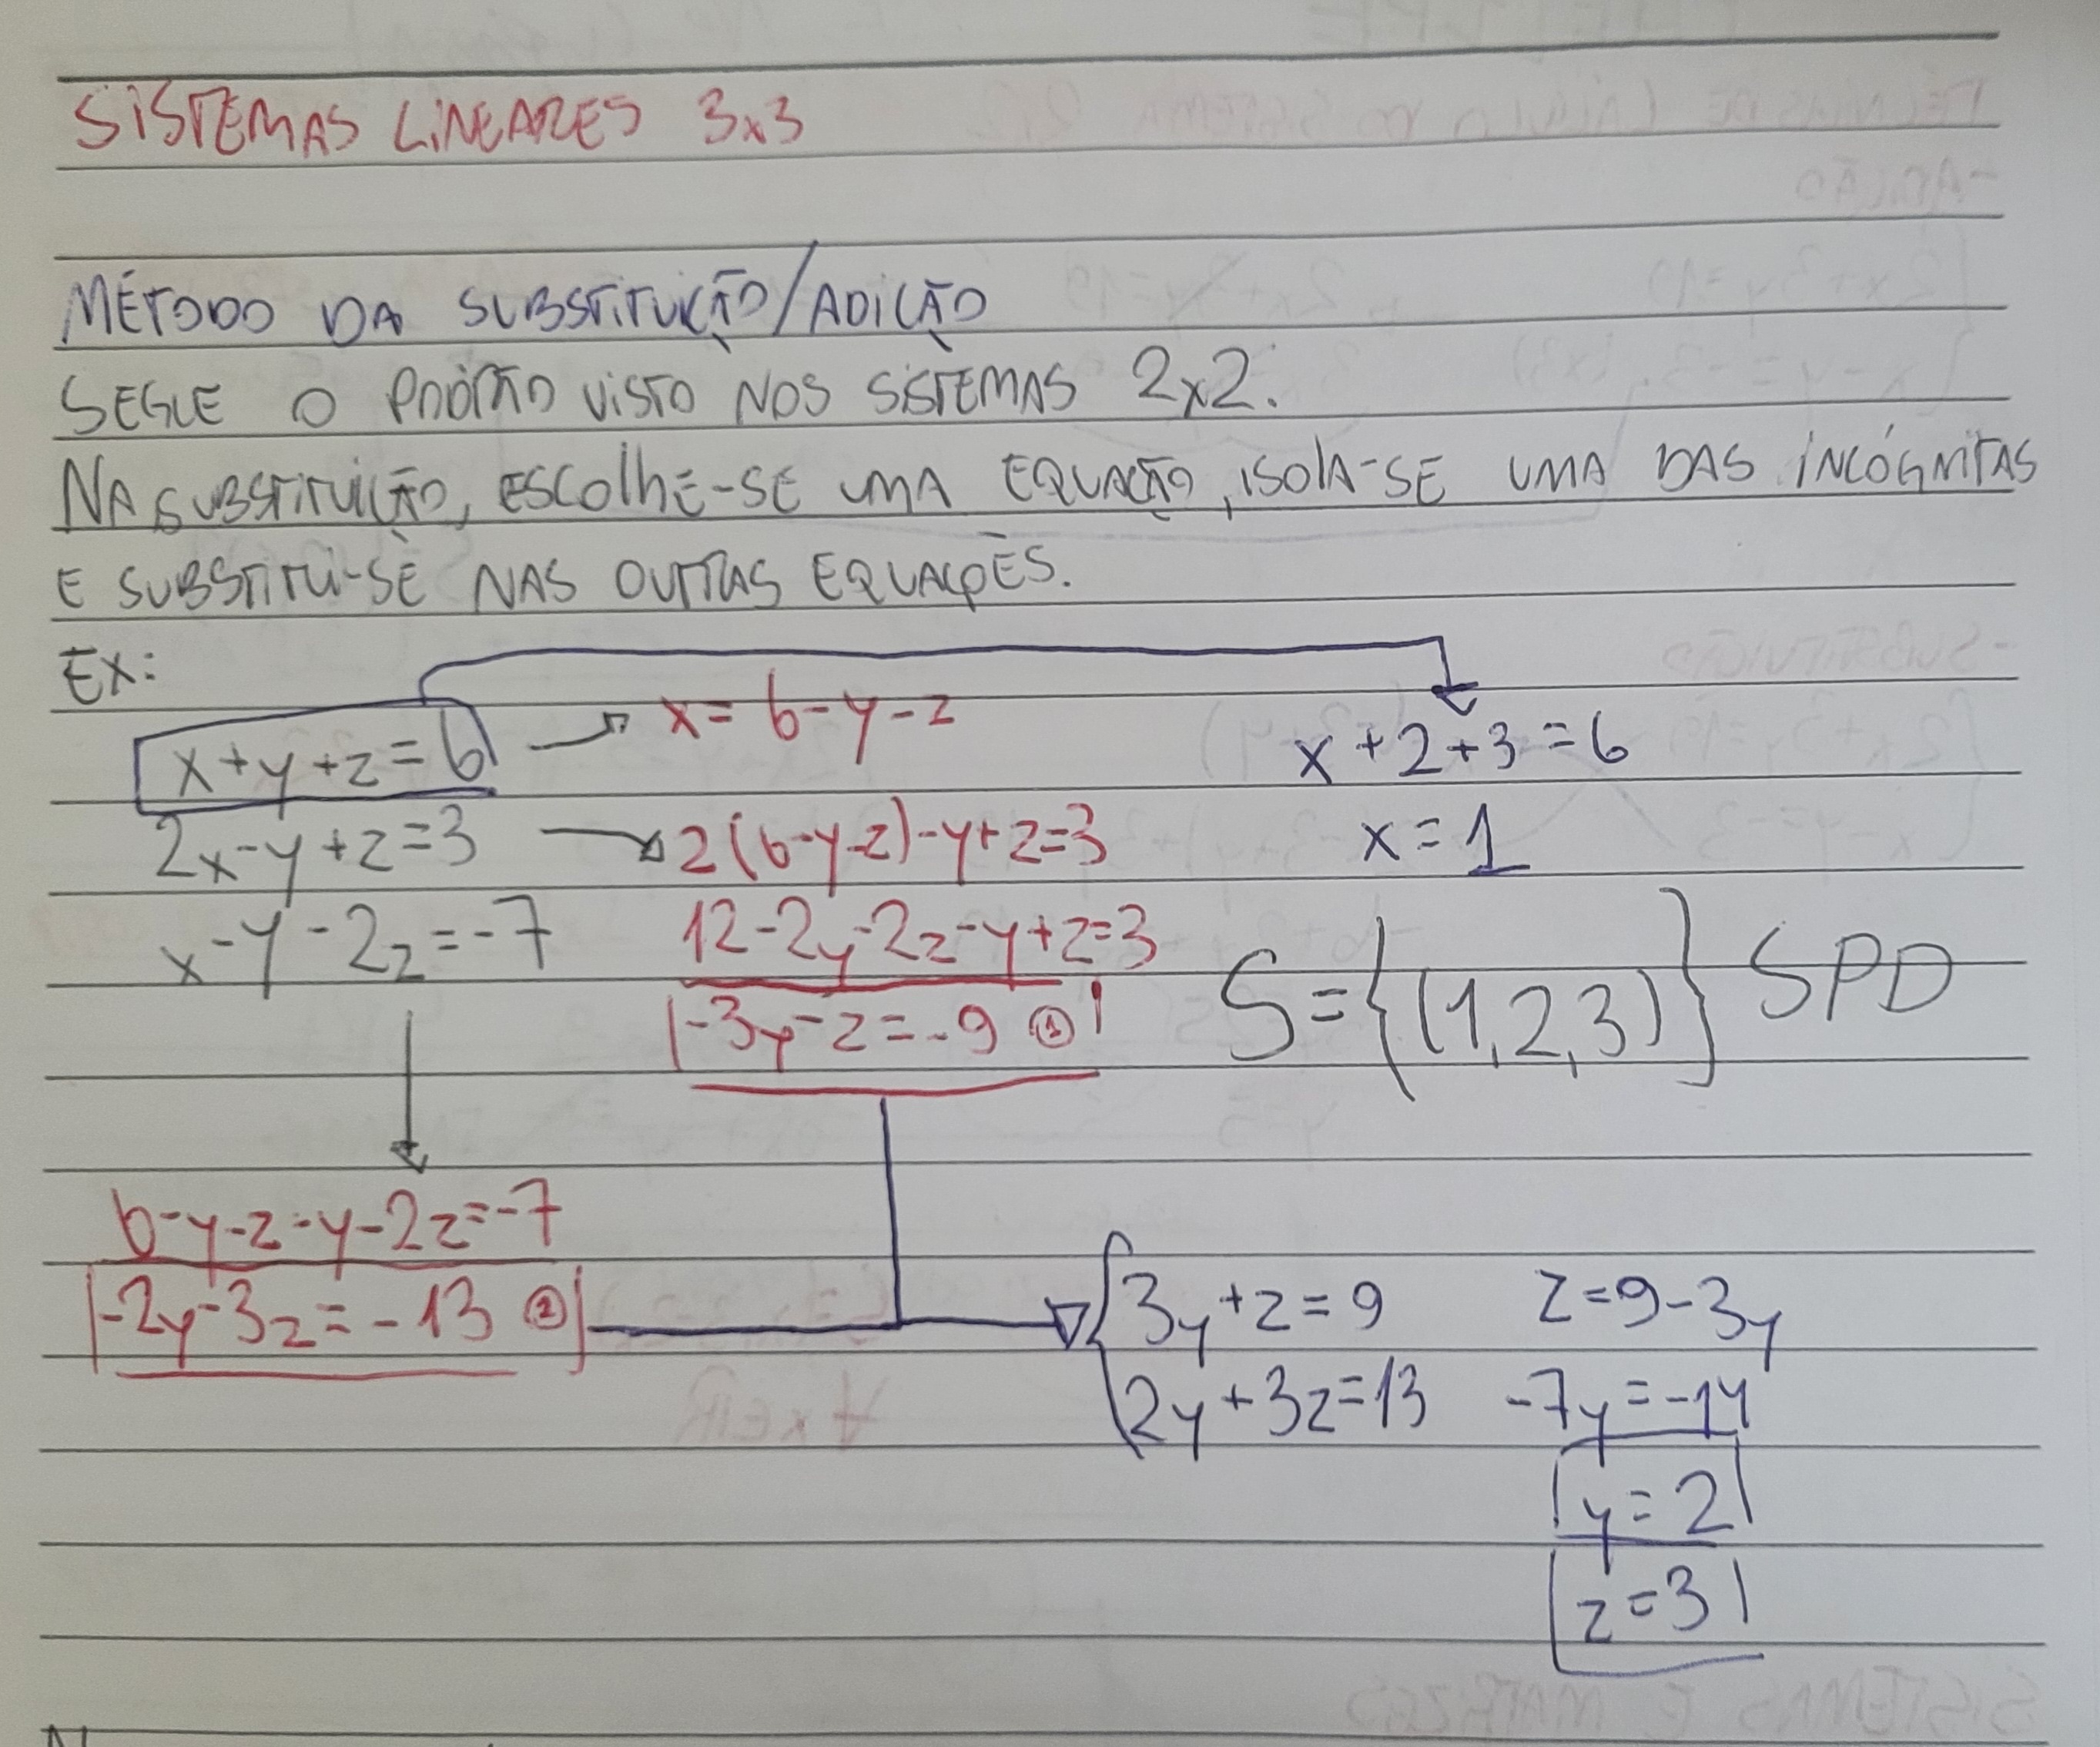 SISTEMAS LINEARES 3x3
MÉTODO DA SUBSTITUIÇÃO/ADIÇÃO
SEGUE O PADRÃO VISTO NOS SISTEMAS 2x2.
NA SUBSTITUIÇÃO, ESCOLHE-SE UMA EQUAÇÃO, ISOLA-SE UMA DAS INCÓGNITAS
E SUBSTITUI-SE NAS OUTRAS EQUAÇÕES.
EX:
x+y+z=6
x=6-y-z
x+2+3=6
2x-y+z=3
2(6-y-z)-y+z=3
x=1
x-y-2z=-7
12-2y-2z-y+z=3
-3y-z=-9 ①
S={(1,2,3)} SPD
6-y-z-y-2z=-7
-2y-3z=-13 ②
3y+z=9
z=9-3y
2y+3z=13
-7y=-14
y=2
z=3